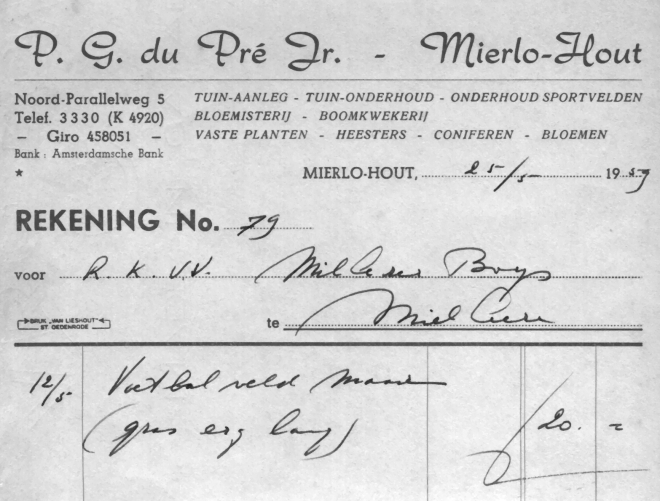 P. G. du Pré Jr. - Mierlo-Hout
Noord-Parallelweg 5
Telef. 3330 (K 4920)
— Giro 458051 —
Bank: Amsterdamsche Bank
TUIN-AANLEG - TUIN-ONDERHOUD - ONDERHOUD SPORTVELDEN
BLOEMISTERIJ - BOOMKWEKERIJ
VASTE PLANTEN - HEESTERS - CONIFEREN - BLOEMEN
MIERLO-HOUT, 25/5 1959
REKENING No. 79
voor R. K. V.V. Milheezer Boys
DRUK „VAN LIESHOUT"
ST OEDENRODE
te Milheeze
12/5 Voetbalveld maaien
(gras erg lang) 20. =